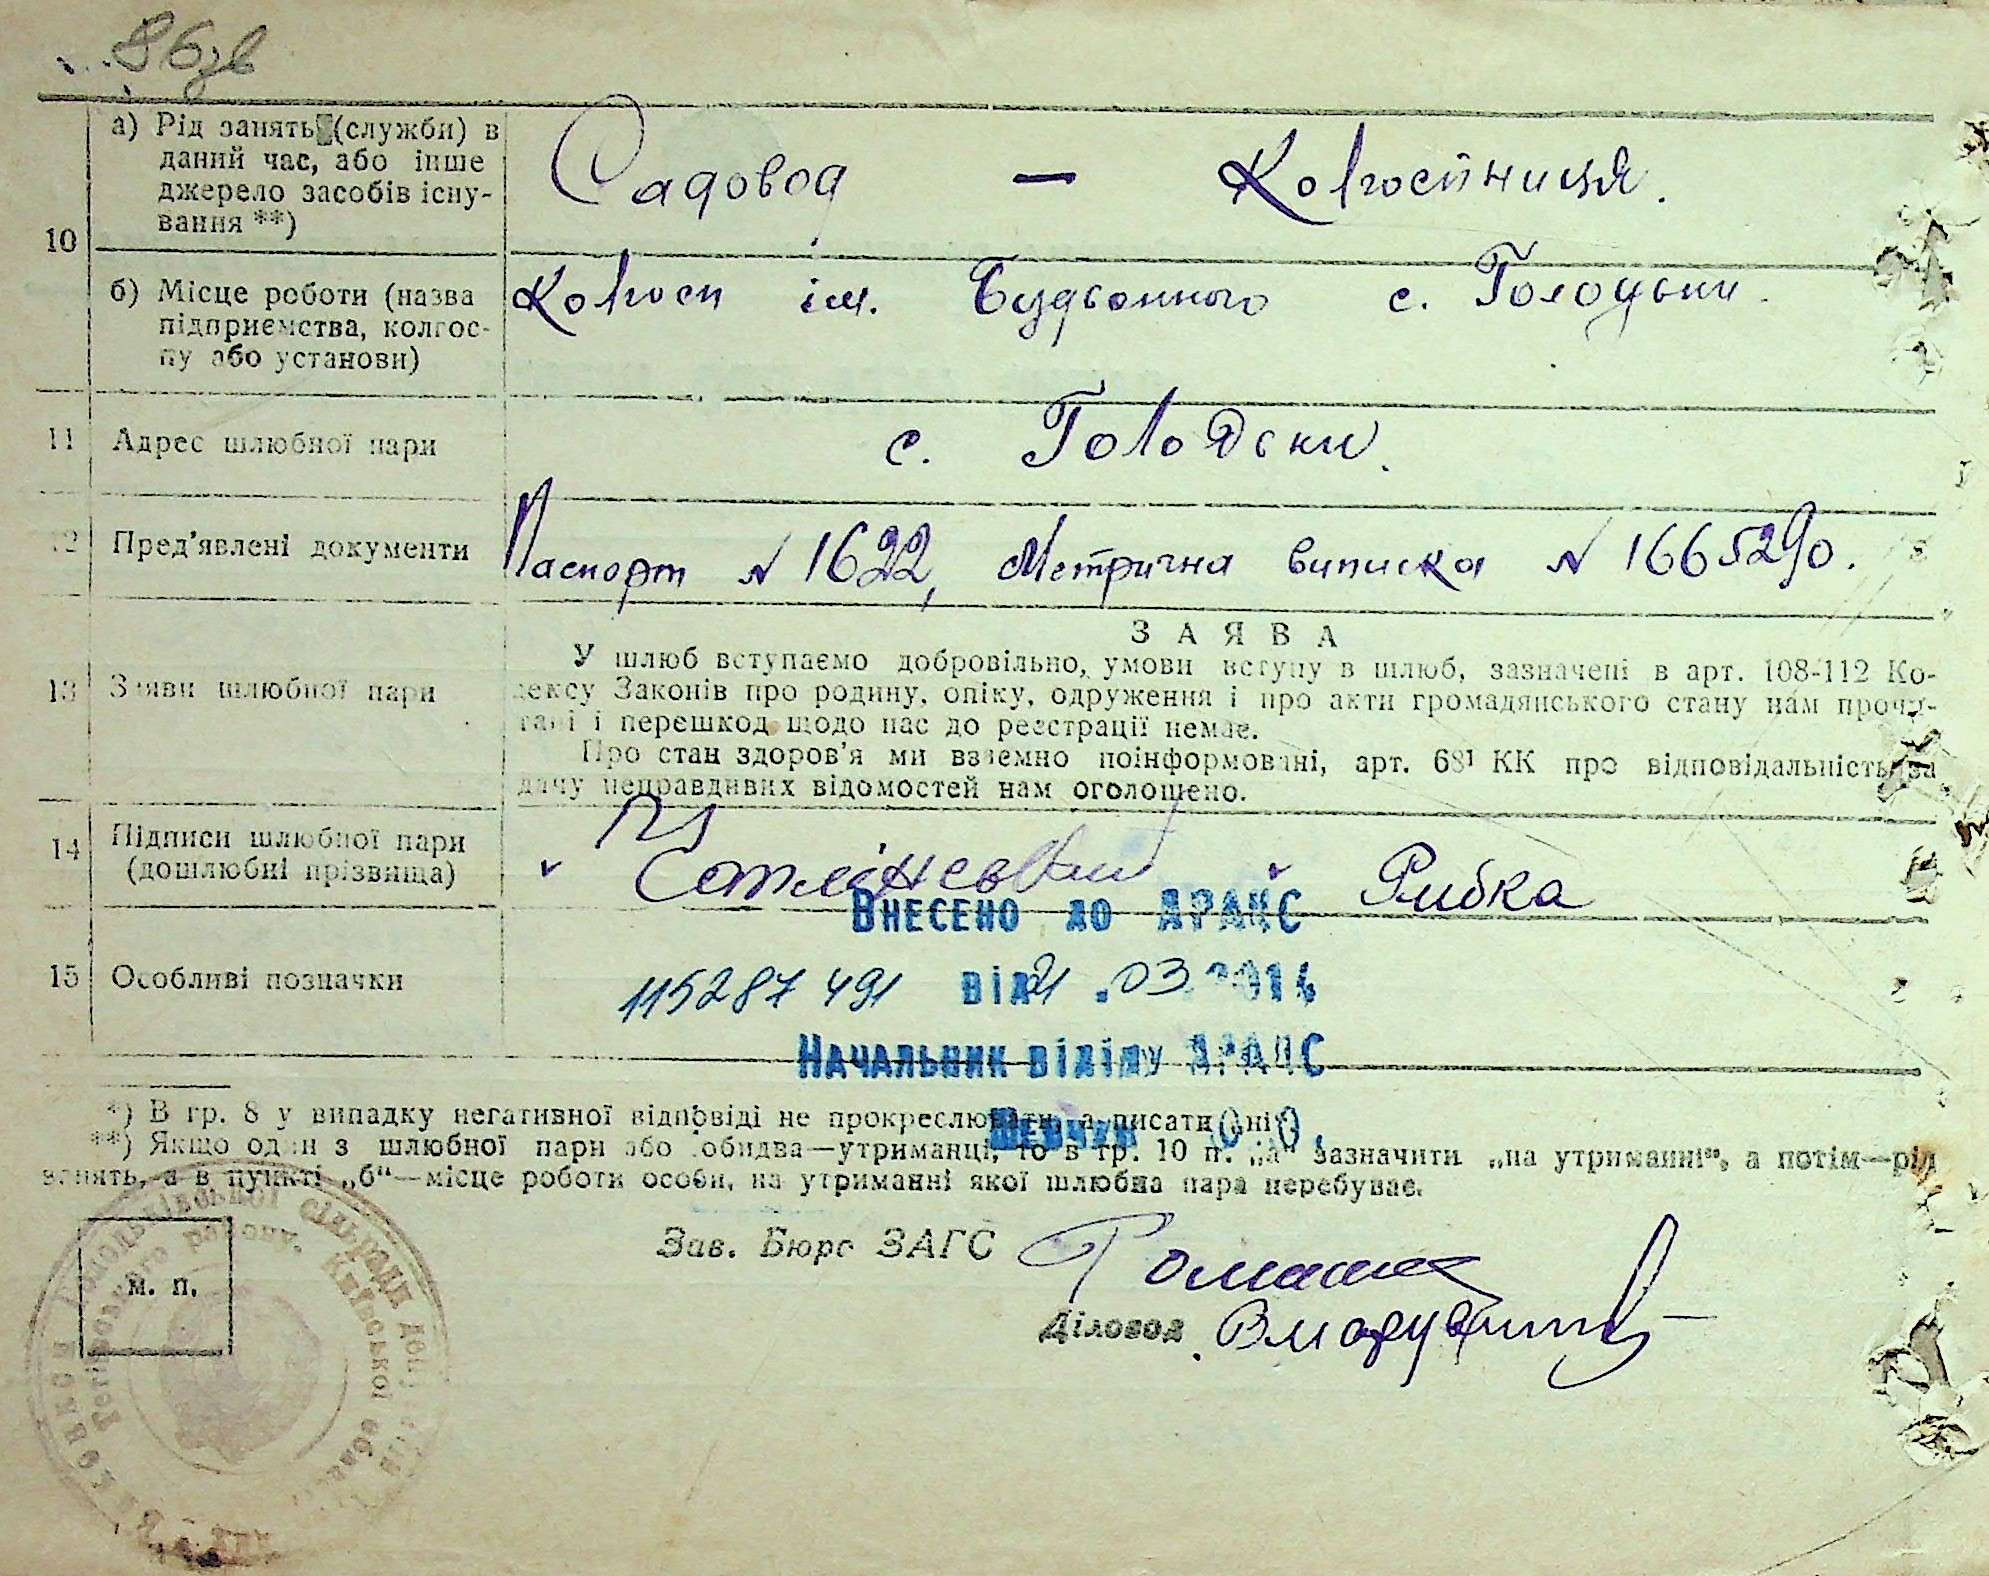 86зв
10
а) Рід занять (служби) в
даний час, або інше
джерело засобів існу-
вання **)
Садовод — Колгоспниця.
б) Місце роботи (назва
підприємства, колгос-
пу або установи)
Колгосп ім. Будьонного с. Голодьки.
11 Адрес шлюбної пари
с. Голодьки.
12 Пред’явлені документи
Паспорт № 1622, Метрична виписка № 1665290.
13 Заяви шлюбної пари
ЗАЯВА
У шлюб вступаємо добровільно, умови вступу в шлюб, зазначені в арт. 108-112 Ко-
дексу Законів про родину, опіку, одруження і про акти громадянського стану нам прочи-
тані і перешкод щодо нас до реєстрації немає.
Про стан здоров’я ми взаємно поінформовані, арт. 68¹ КК про відповідальність за
дачу неправдивих відомостей нам оголошено.
14 Підписи шлюбної пари
(дошлюбні прізвища)
Рибка
Внесено до ДРАЦС
15 Особливі позначки
115287491 від 21.03.2014
Начальник відділу ДРАЦС
*) В гр. 8 у випадку негативної відповіді не прокреслювати, а писати „ні“.
Шевчук О.О.
**) Якщо один з шлюбної пари або обидва—утриманці, то в гр. 10 п. „а“ зазначити „на утриманні“, а потім—рід
занять, а в пункті „б“—місце роботи особи, на утриманні якої шлюбна пара перебуває.
Зав. Бюро ЗАГС
м. п.
Діловод